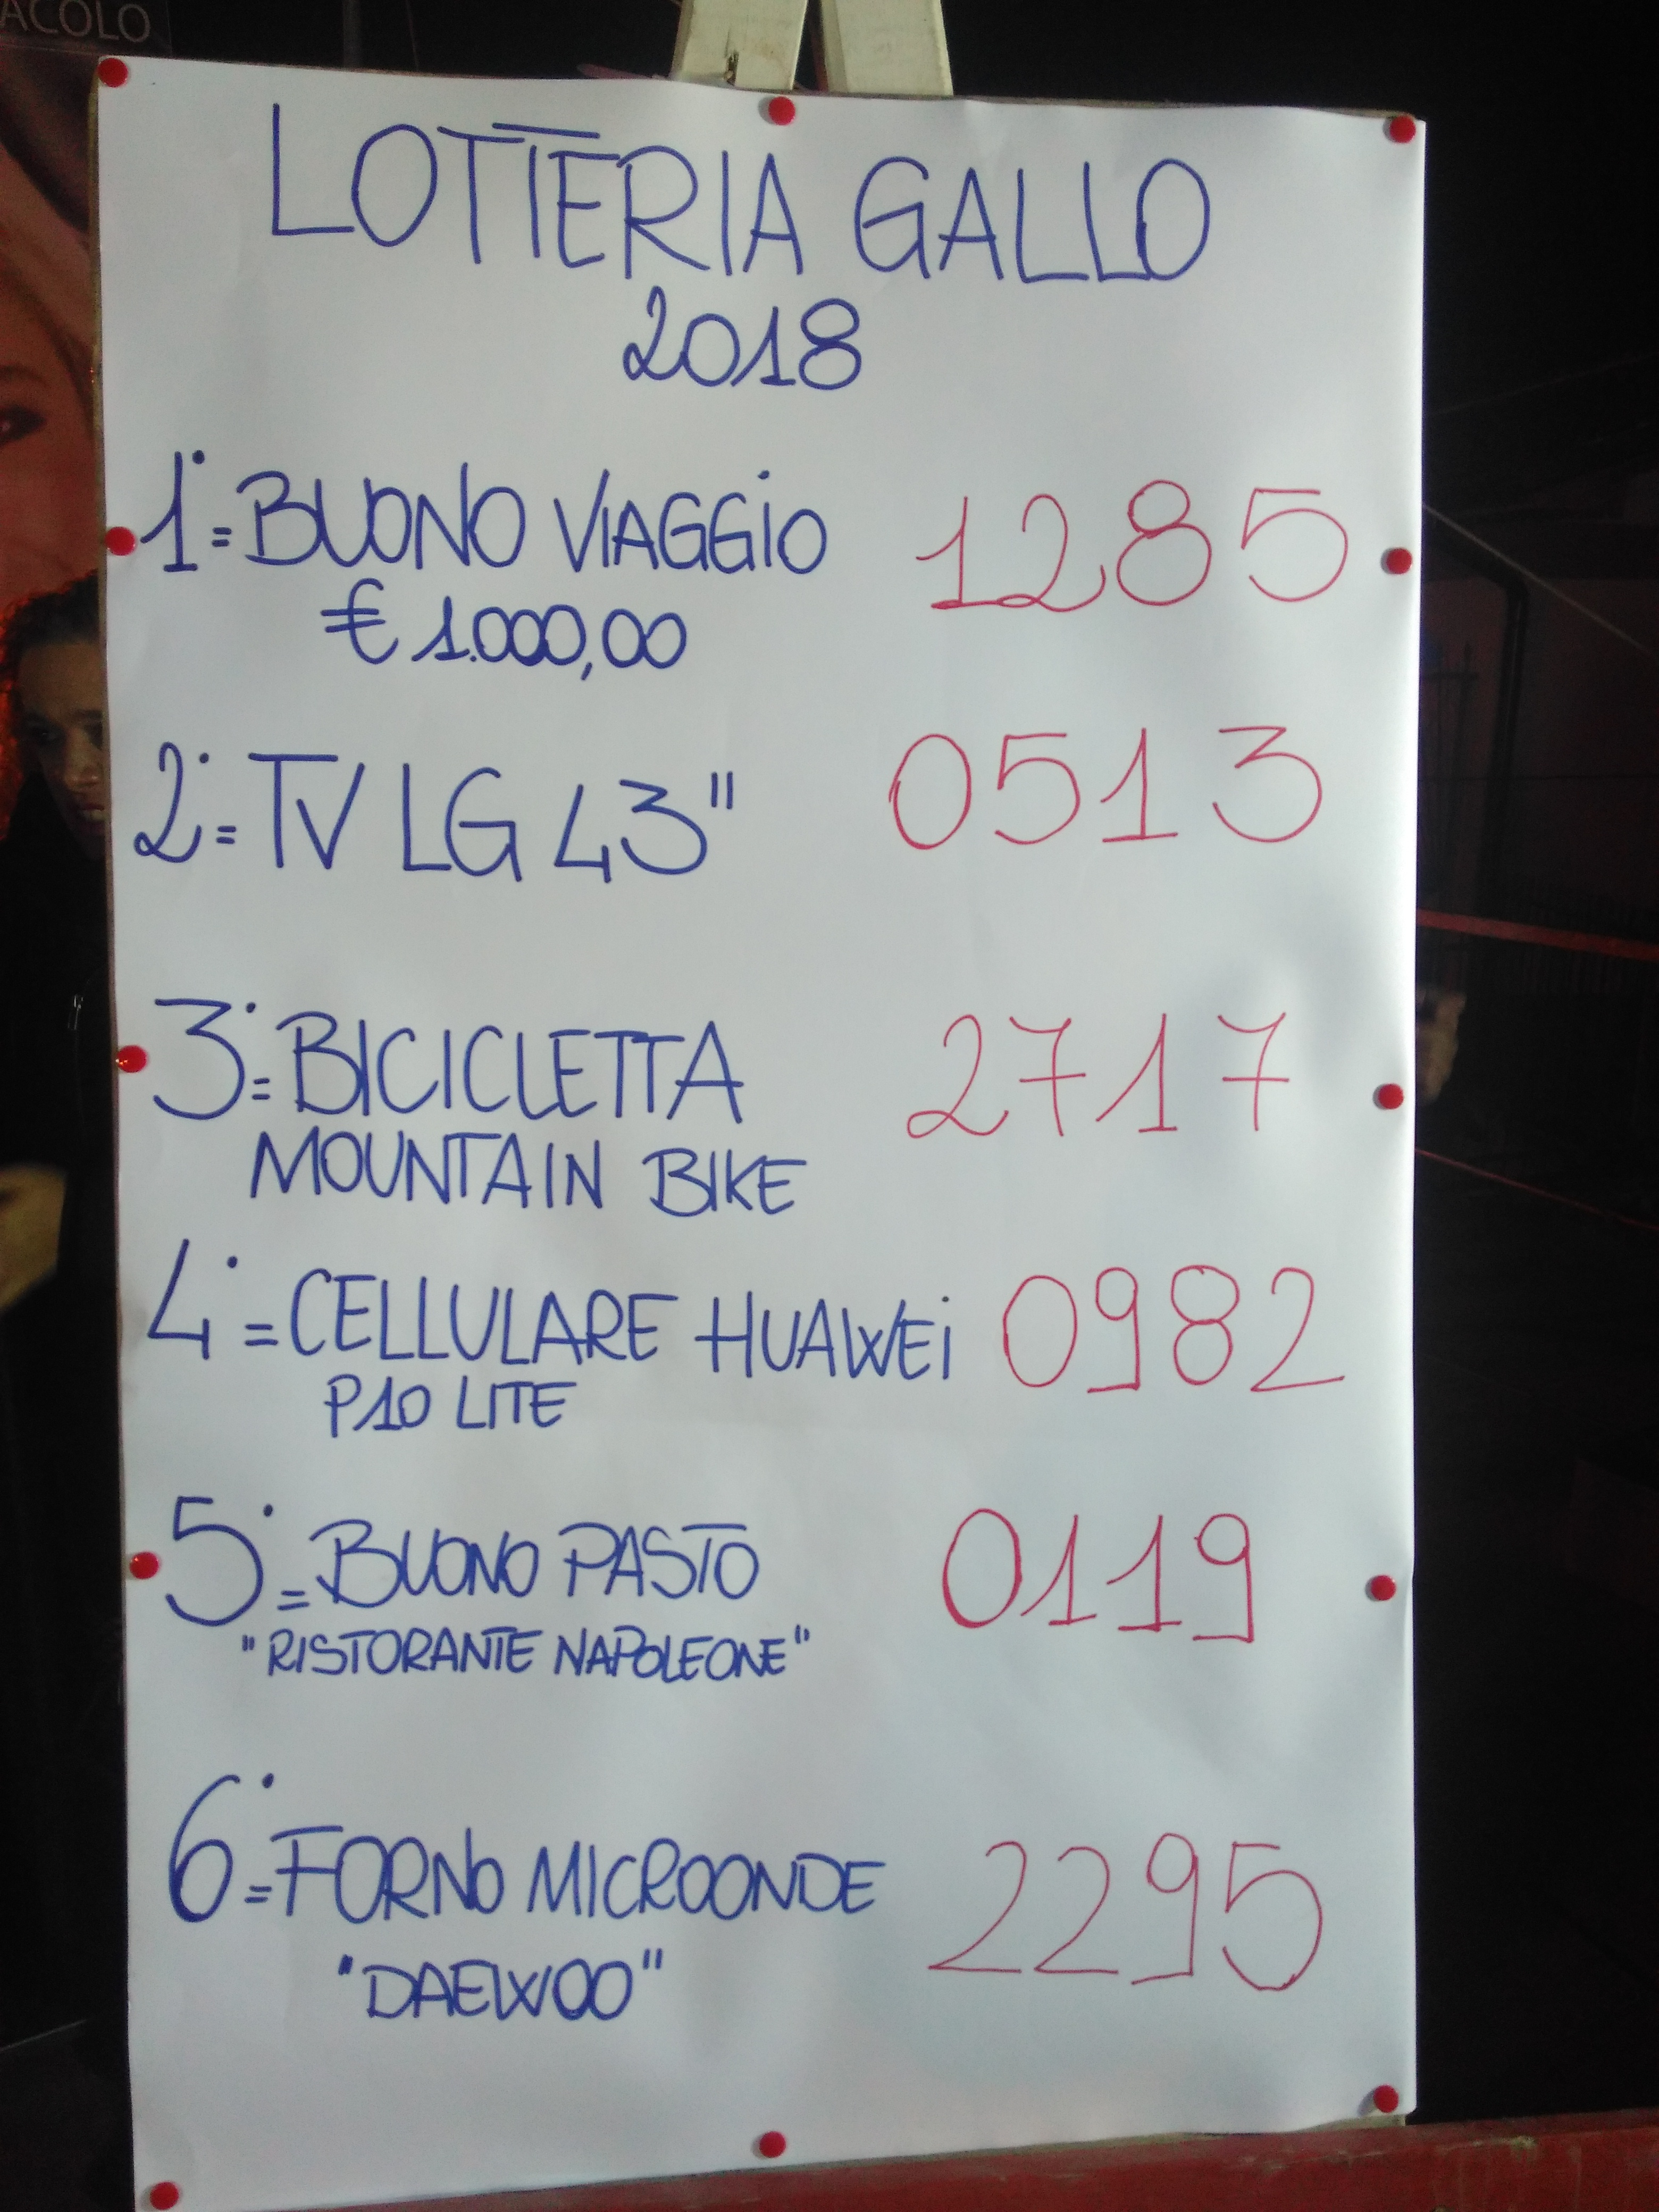 ACOLO
LOTTERIA GALLO
2018
1°= BUONO VIAGGIO 1285
€ 1.000,00
2°= TV LG 43" 0513
3°= BICICLETTA 2717
MOUNTAIN BIKE
4°= CELLULARE HUAWEi 0982
P10 LITE
5°= BUONO PASTO 0119
"RISTORANTE NAPOLEONE"
6°= FORNO MICROONDE 2295
"DAEWOO"